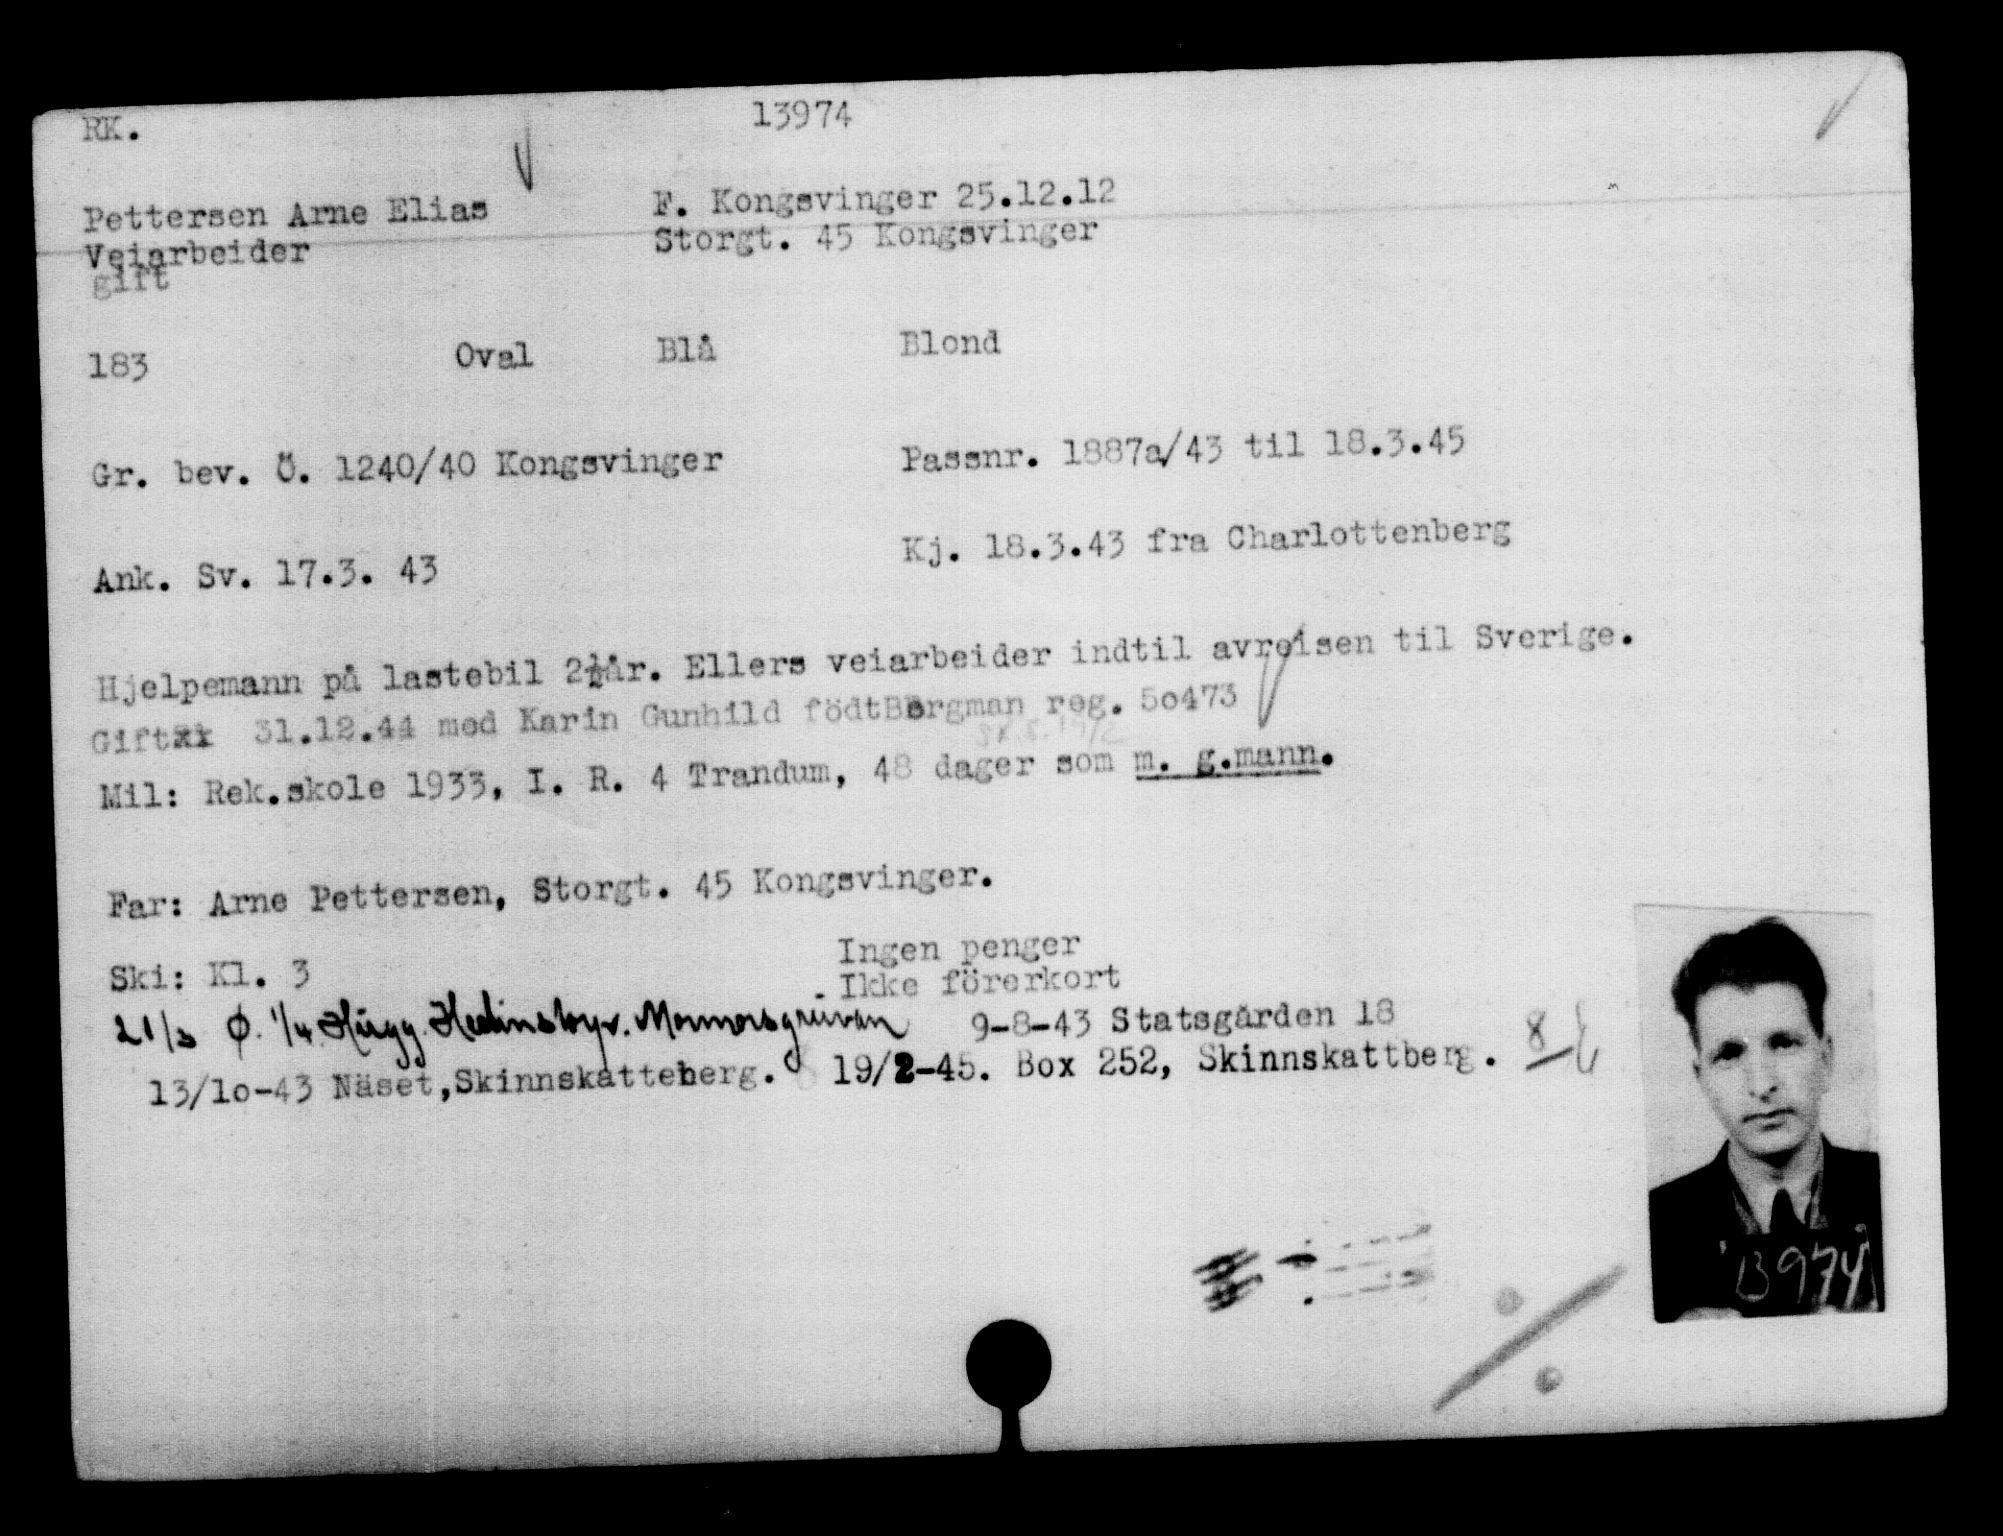 RK.
13974
Pettersen Arne Elias
F. Kongsvinger 25.12.12
Veiarbeider
Storgt. 45 Kongsvinger
gift
183 Oval Blå Blond
Gr. bev. Ö. 1240/40 Kongsvinger
Passnr. 1887a/43 til 18.3.45
Ank. Sv. 17.3. 43
Kj. 18.3.43 fra Charlottenberg
Hjelpemann på lastebil 2½år. Ellers veiarbeider indtil avreisen til Sverige.
Gift 31.12.44 med Karin Gunhild födt Bergman reg. 5o473
Mil: Rek.skole 1933, I. R. 4 Trandum, 48 dager som m. g.mann.
Far: Arne Pettersen, Storgt. 45 Kongsvinger.
Ski: Kl. 3
Ingen penger
Ikke förerkort
21/3 Ø. 1/4 Hugg. Mormorsgruvan
9-8-43 Statsgården 18
13/1o-43 Näset,Skinnskatteberg.
19/2-45. Box 252, Skinnskattberg.
13974